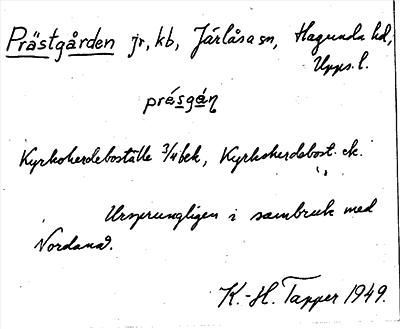 Prästgården jr, kb, Järlåsa sn, Hagunda hd,
Upps. l.
présgán
Kyrkoherdeboställe 3/4 bek, Kyrkoherdebost. ek.
Ursprungligen i sambruk med
Nordanå.
K.-H. Tapper 1949.